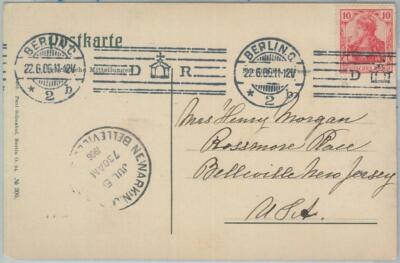 Postkarte
BERLIN.C.
22.6.06.11-12V
* 2 b
D R
BERLIN.C.
22.6.06.11-12V
* 2 b
D
10 10
Mrs Henry Morgan
Rossmore Place
Belleville New Jersey
U.S.A.
NEWARK N.J.
BELLEVILLE
JUL 5
730AM
1906
Berlin O. 34. № 300.